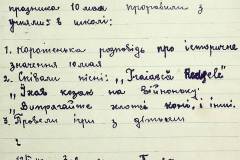 празника 10 мая проробили з
учнями в школі:
1. Коротенька розповідь про історичне
значення 10 мая
2. Співали пісні: „Traiască Regele"
„Їхав козак на війноньку"
„Випрягайте хлопці коні", і інші.
3. Провели ігри з дітьми